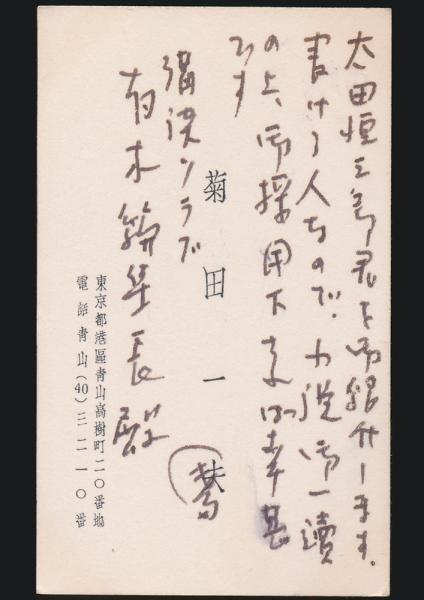 太田恒三郎君を御紹介します。
書ける人なので、小説御一読
の上、御採用下されば幸甚
です
菊田一夫
講談クラブ
有木編集長殿
東京都港區青山高樹町二〇番地
電話青山(40)三二一〇番